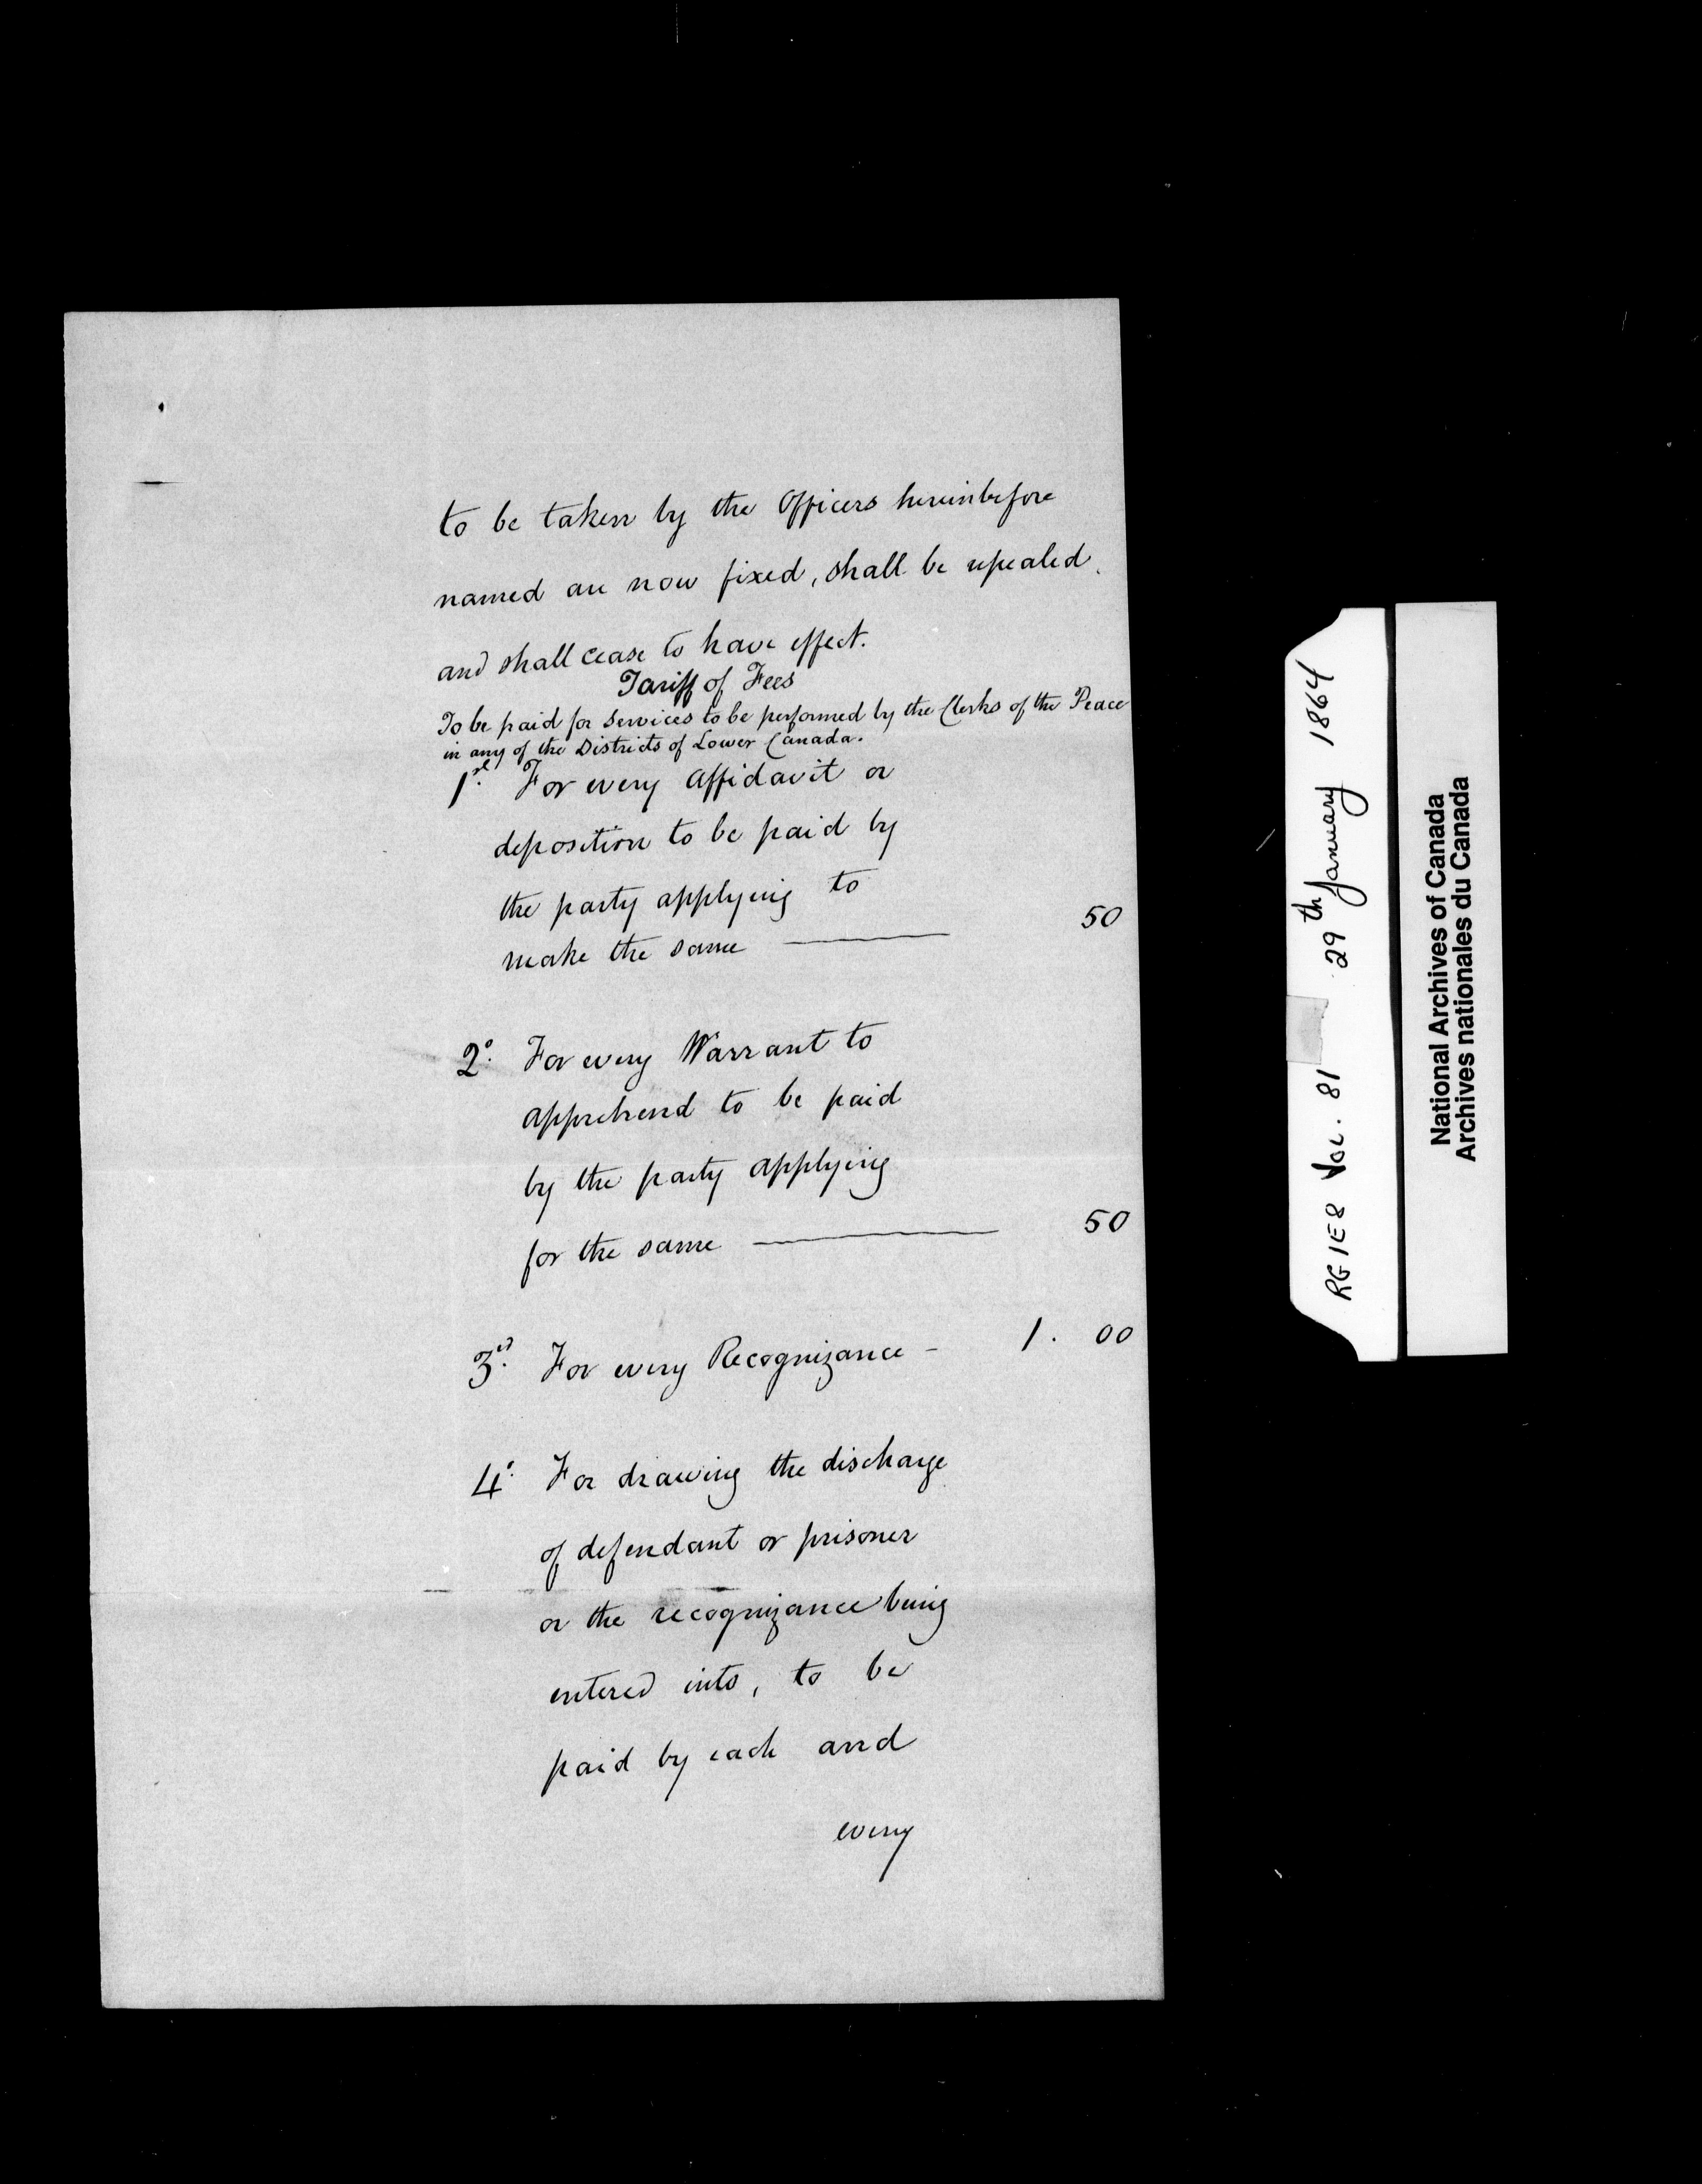 to be taken by the Officers hereinbefore
named are now fixed, shall be repealed.
and shall cease to have effect.
Tariff of Fees
To be paid for services to be performed by the Clerks of the Peace
in any of the Districts of Lower Canada.
1st. For every Affidavit or
deposition to be paid by
the party applying to
make the same — 50
2°. For every Warrant to
apprehend to be paid
by the party applying
for the same — 50
3d. For every Recognizance - 1. 00
4°. For drawing the discharge
of defendant or prisoner
or the recognizance being
entered into, to be
paid by each and
every
RG1E8 Vol. 81 29th January 1864
National Archives of Canada
Archives nationales du Canada